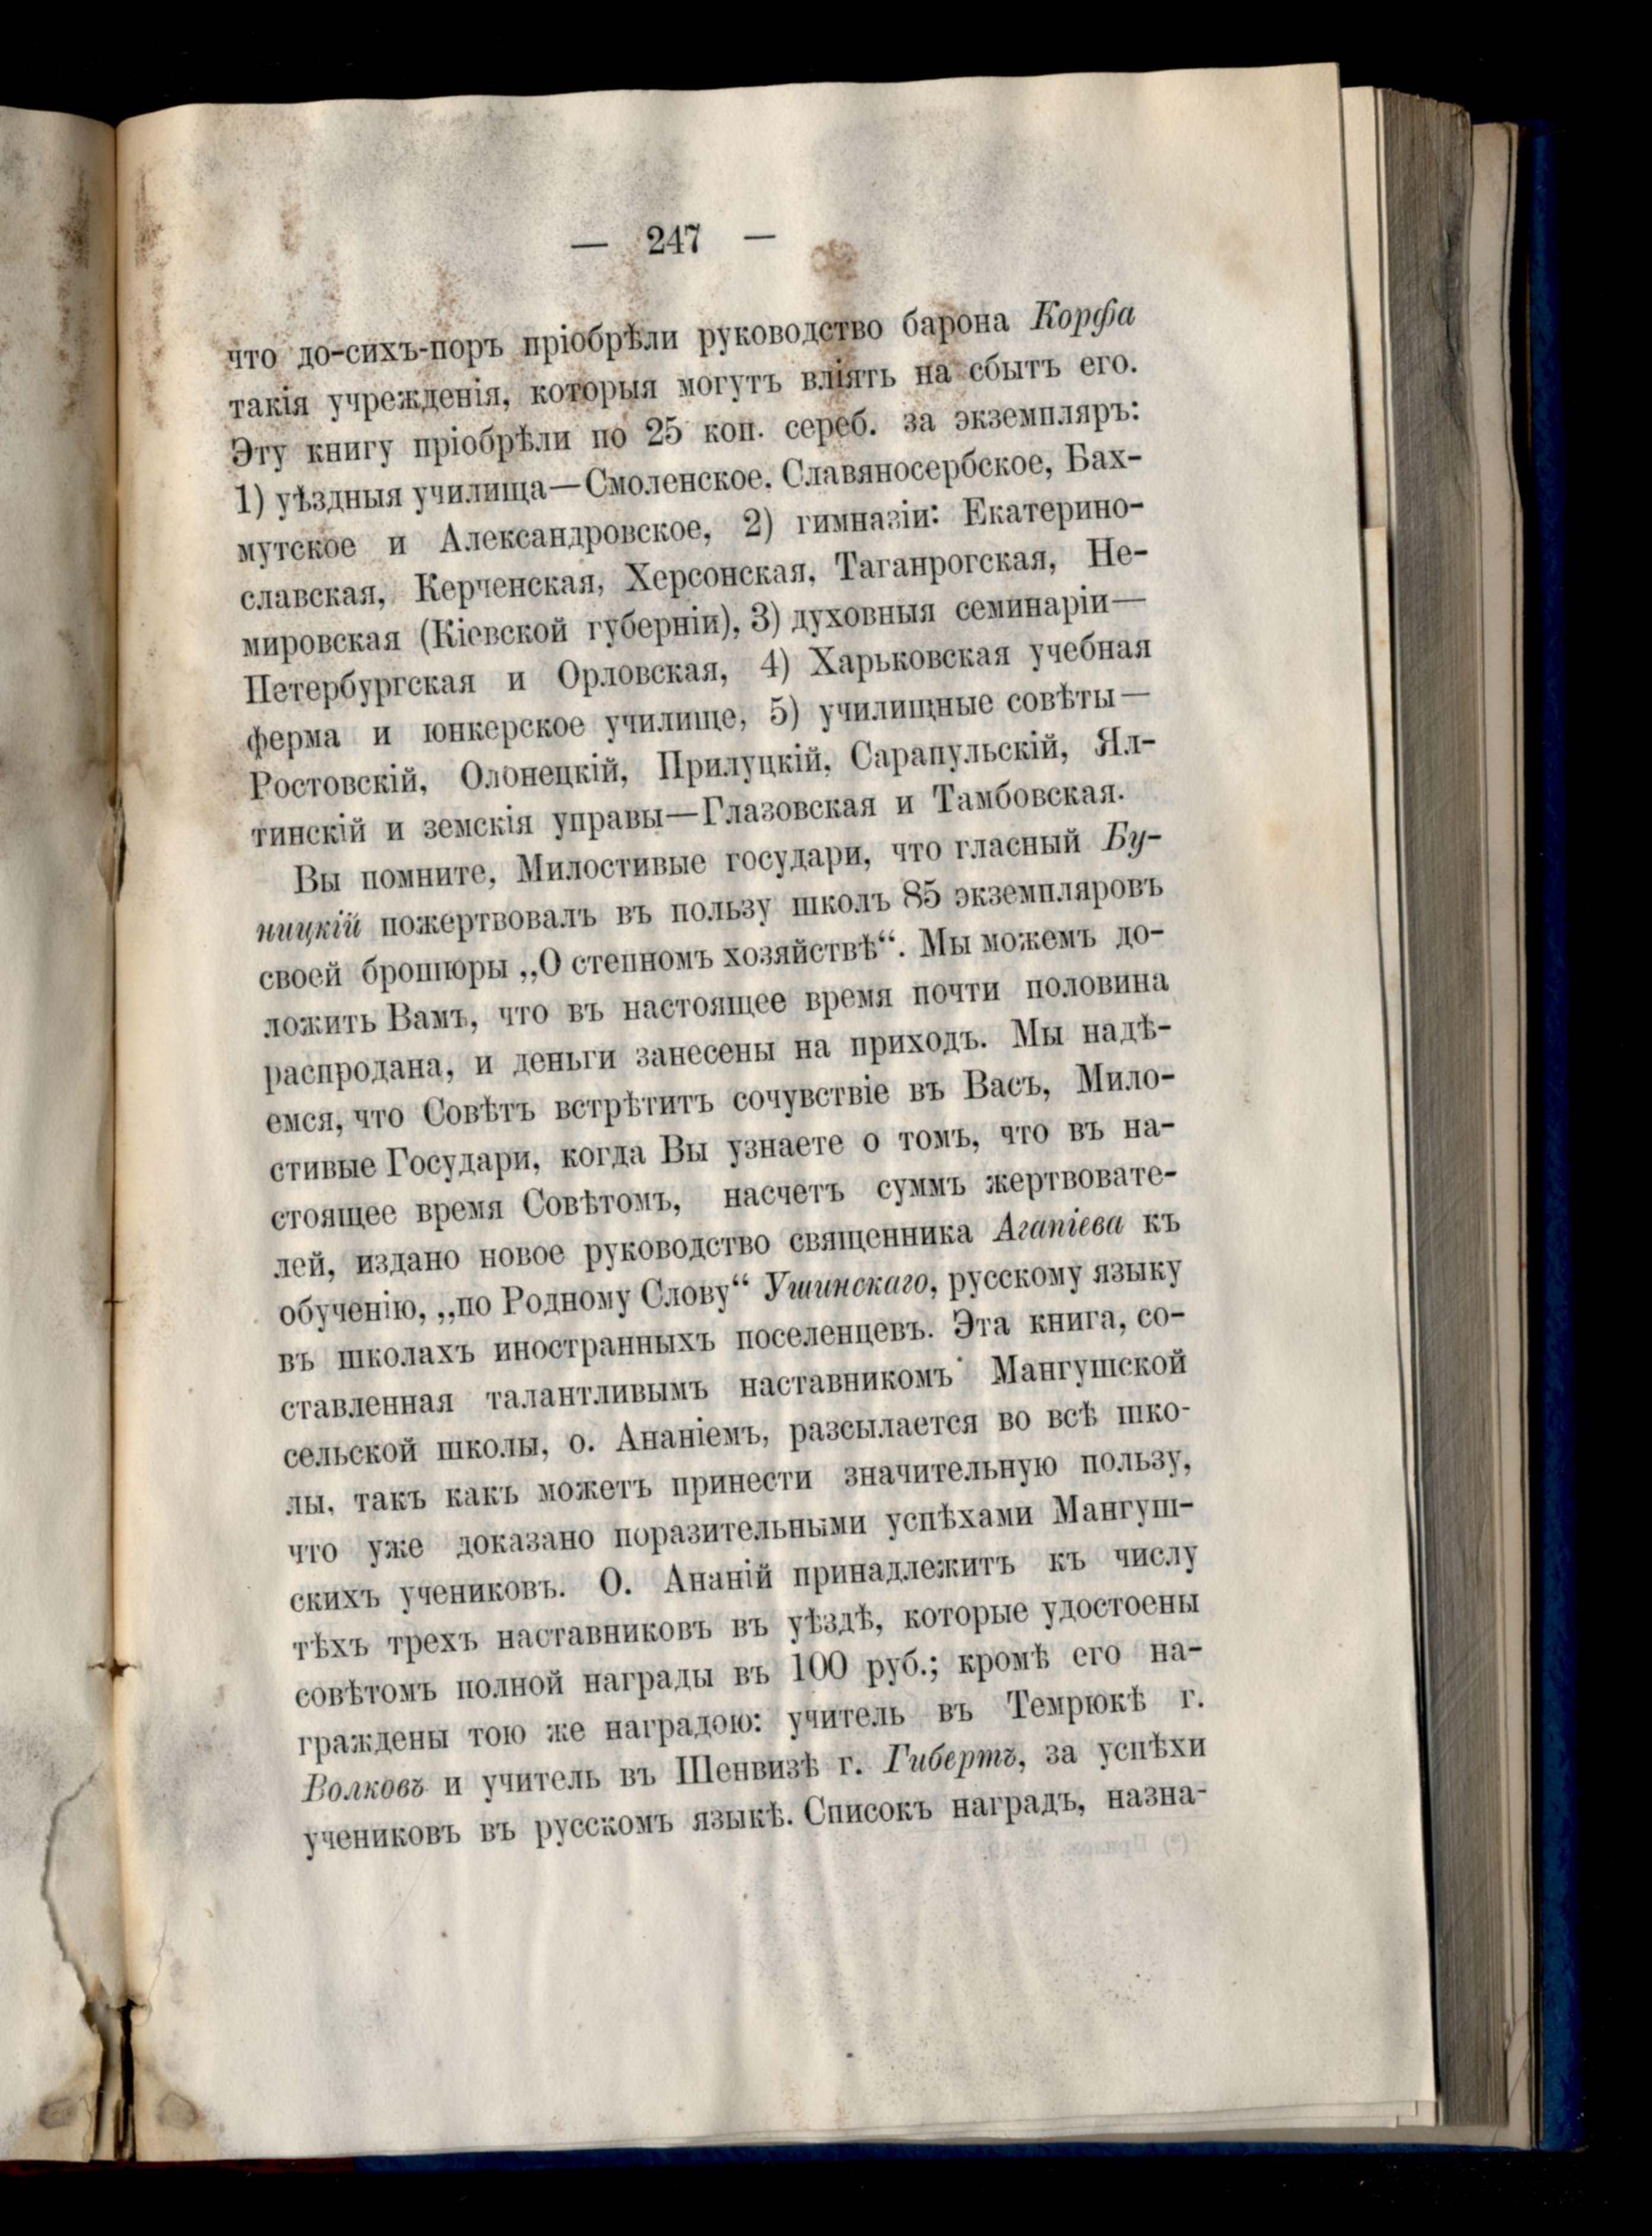 — 247 —
что до-сихъ-поръ пріобрѣли руководство барона Корфа
такія учрежденія, которыя могутъ вліять на сбытъ его.
Эту книгу пріобрѣли по 25 коп. сереб. за экземпляръ:
1) уѣздныя училища—Смоленское, Славяносербское, Бах-
мутское и Александровское, 2) гимназіи: Екатерино-
славская, Керченская, Херсонская, Таганрогская, Не-
мировская (Кіевской губерніи), 3) духовныя семинаріи—
Петербургская и Орловская, 4) Харьковская учебная
ферма и юнкерское училище, 5) училищные совѣты—
Ростовскій, Олонецкій, Прилуцкій, Сарапульскій, Ял-
тинскій и земскія управы—Глазовская и Тамбовская.
Вы помните, Милостивые государи, что гласный Бу-
ницкій пожертвовалъ въ пользу школъ 85 экземпляровъ
своей брошюры „О степномъ хозяйствѣ“. Мы можемъ до-
ложить Вамъ, что въ настоящее время почти половина
распродана, и деньги занесены на приходъ. Мы надѣ-
емся, что Совѣтъ встрѣтитъ сочувствіе въ Васъ, Мило-
стивые Государи, когда Вы узнаете о томъ, что въ на-
стоящее время Совѣтомъ, насчетъ суммъ жертвовате-
лей, издано новое руководство священника Агапіева къ
обученію, „по Родному Слову“ Ушинскаго, русскому языку
въ школахъ иностранныхъ поселенцевъ. Эта книга, со-
ставленная талантливымъ наставникомъ Мангушской
сельской школы, о. Ананіемъ, разсылается во всѣ шко-
лы, такъ какъ можетъ принести значительную пользу,
что уже доказано поразительными успѣхами Мангуш-
скихъ учениковъ. О. Ананій принадлежитъ къ числу
тѣхъ трехъ наставниковъ въ уѣздѣ, которые удостоены
совѣтомъ полной награды въ 100 руб.; кромѣ его на-
граждены тою же наградою: учитель въ Темрюкѣ г.
Волковъ и учитель въ Шенвизѣ г. Гибертъ, за успѣхи
учениковъ въ русскомъ языкѣ. Списокъ наградъ, назна-